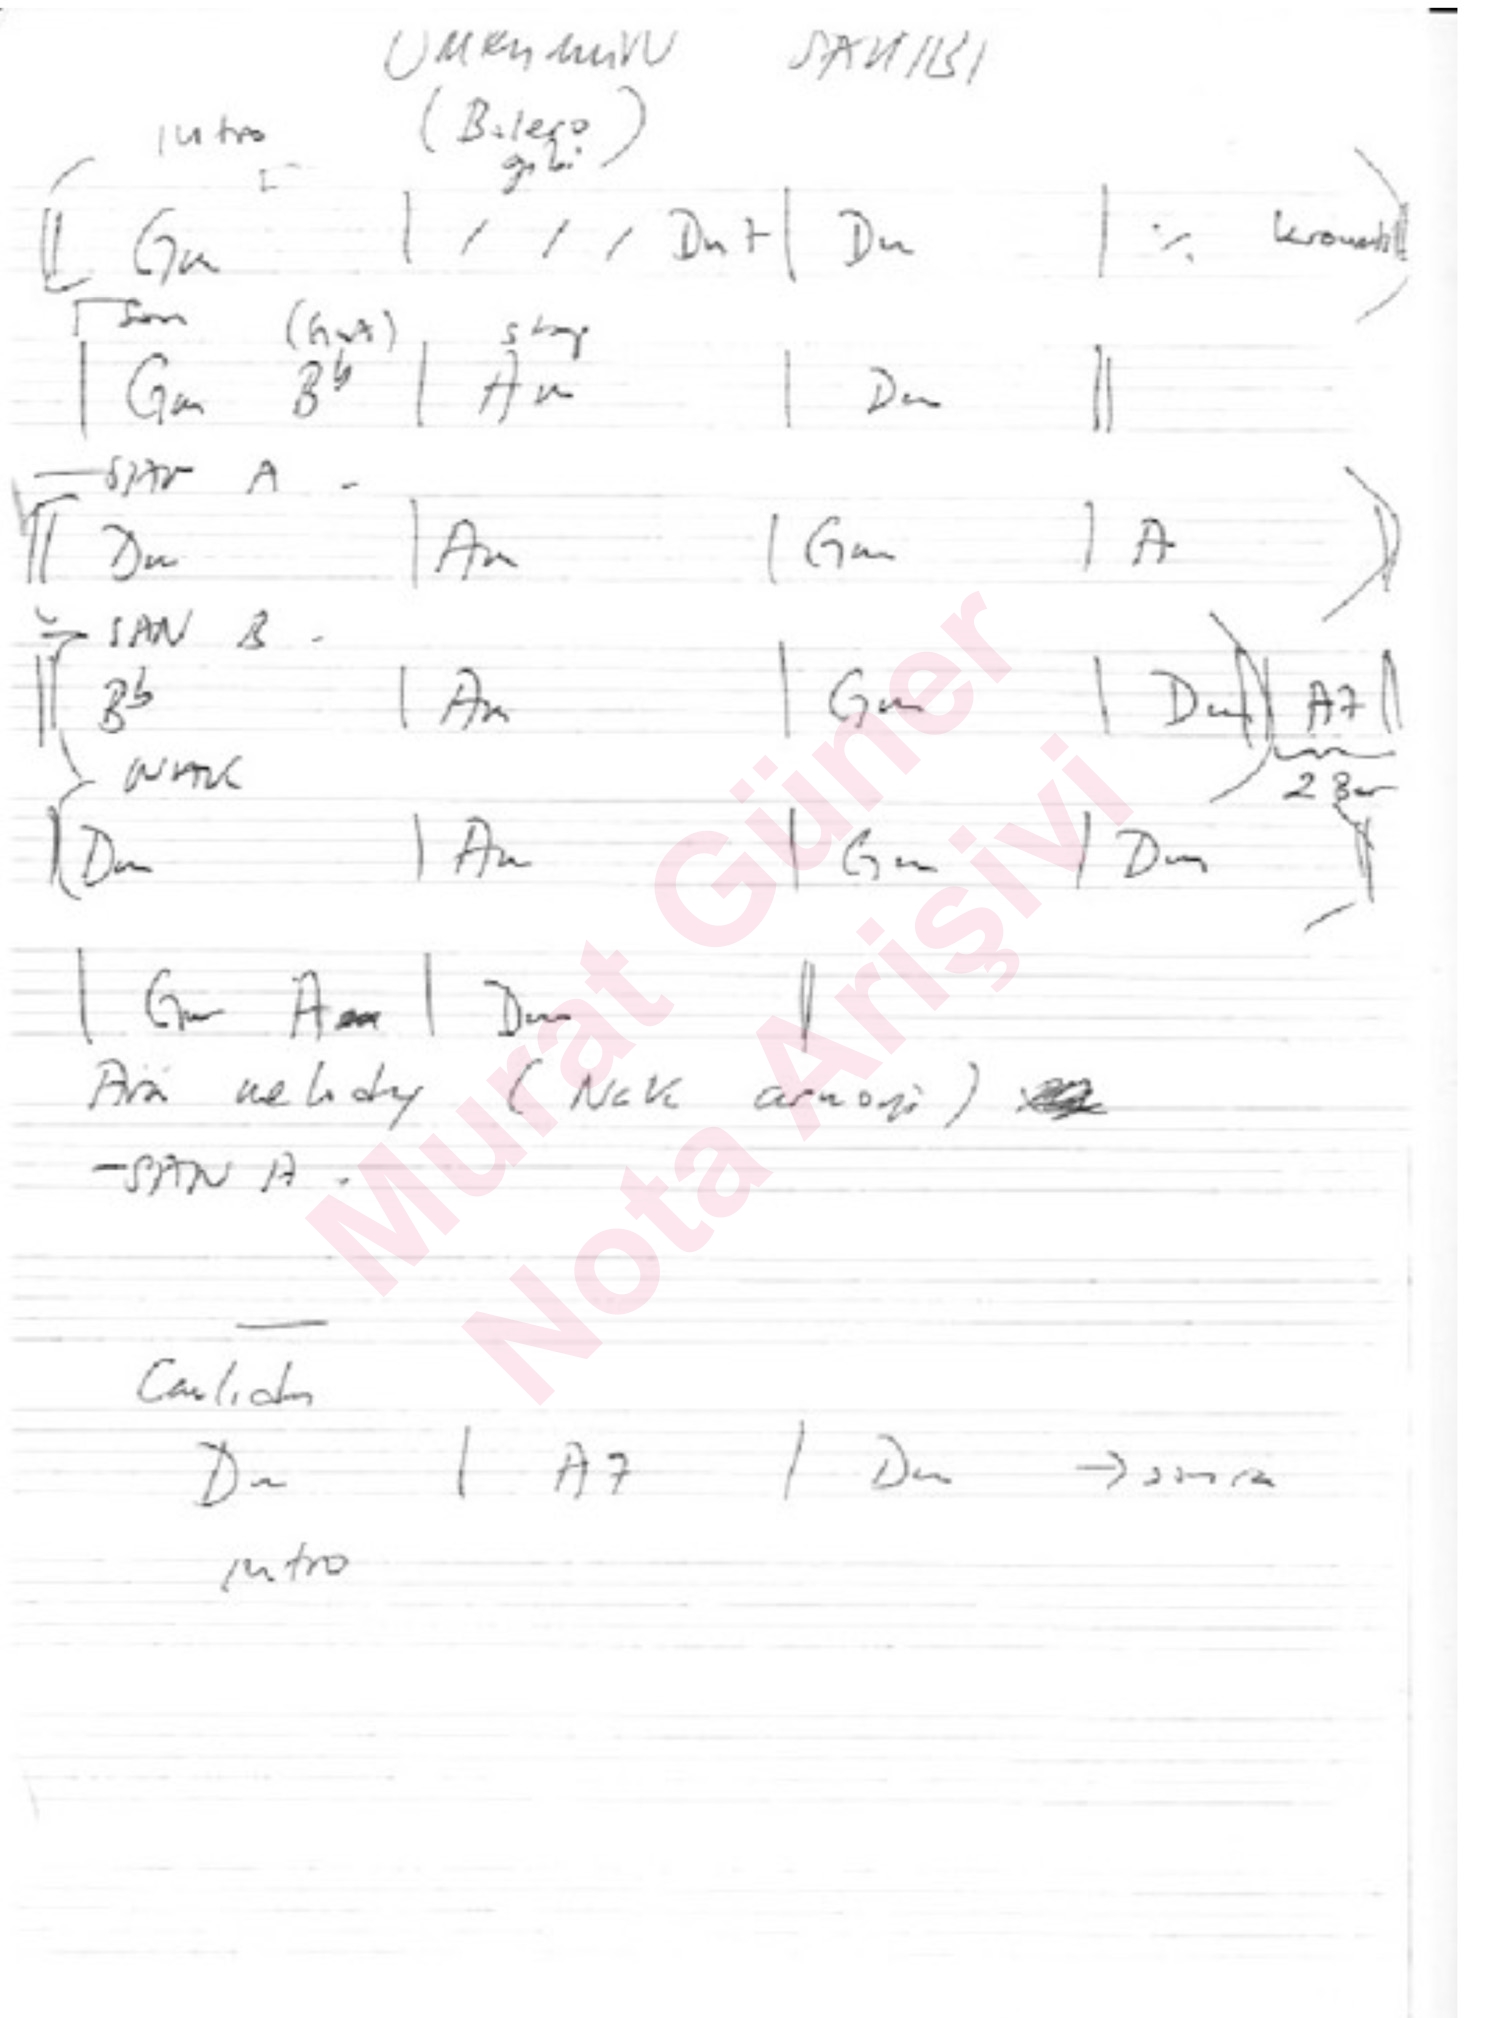 SAHİBİ
intro (Bolero
gibi)
Gm | / / / Dm7 | Dm | ٪
Son (G A) stop
| Gm Bb | Am | Dm ||
—SAN A -
|| Dm | Am | Gm | A ||
- SAN B -
|| Bb | Am | Gm | Dm || A7 ||
NAK
2 Bar
|| Dm | Am | Gm | Dm ||
| Gm Am | Dm ||
Ara melody (NAK armoni)
-SAN A -
Dm | A7 | Dm → sonra
intro
Murat Güner
Nota Arişivi